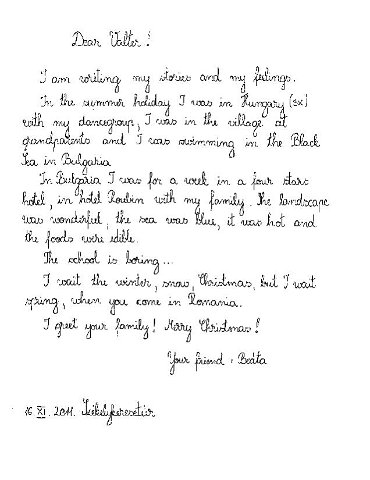 Dear Valter!
I am writing my stories and my feelings.
In the summer holiday I was in Hungary (3x)
with my dancegroup, I was in the village at
grandparents and I was swimming in the Black
Sea in Bulgaria
In Bulgaria I was for a week in a four stars
hotel, in hotel Rouben with my family. The landscape
was wonderful, the sea was blue, it was hot and
the foods were edible.
The school is boring...
I wait the winter, snow, Christmas, but I wait
spring, when you come in Romania.
I greet your family! Marry Christmas!
Your friend: Beáta
16 XI. 2011. Székelykeresztúr